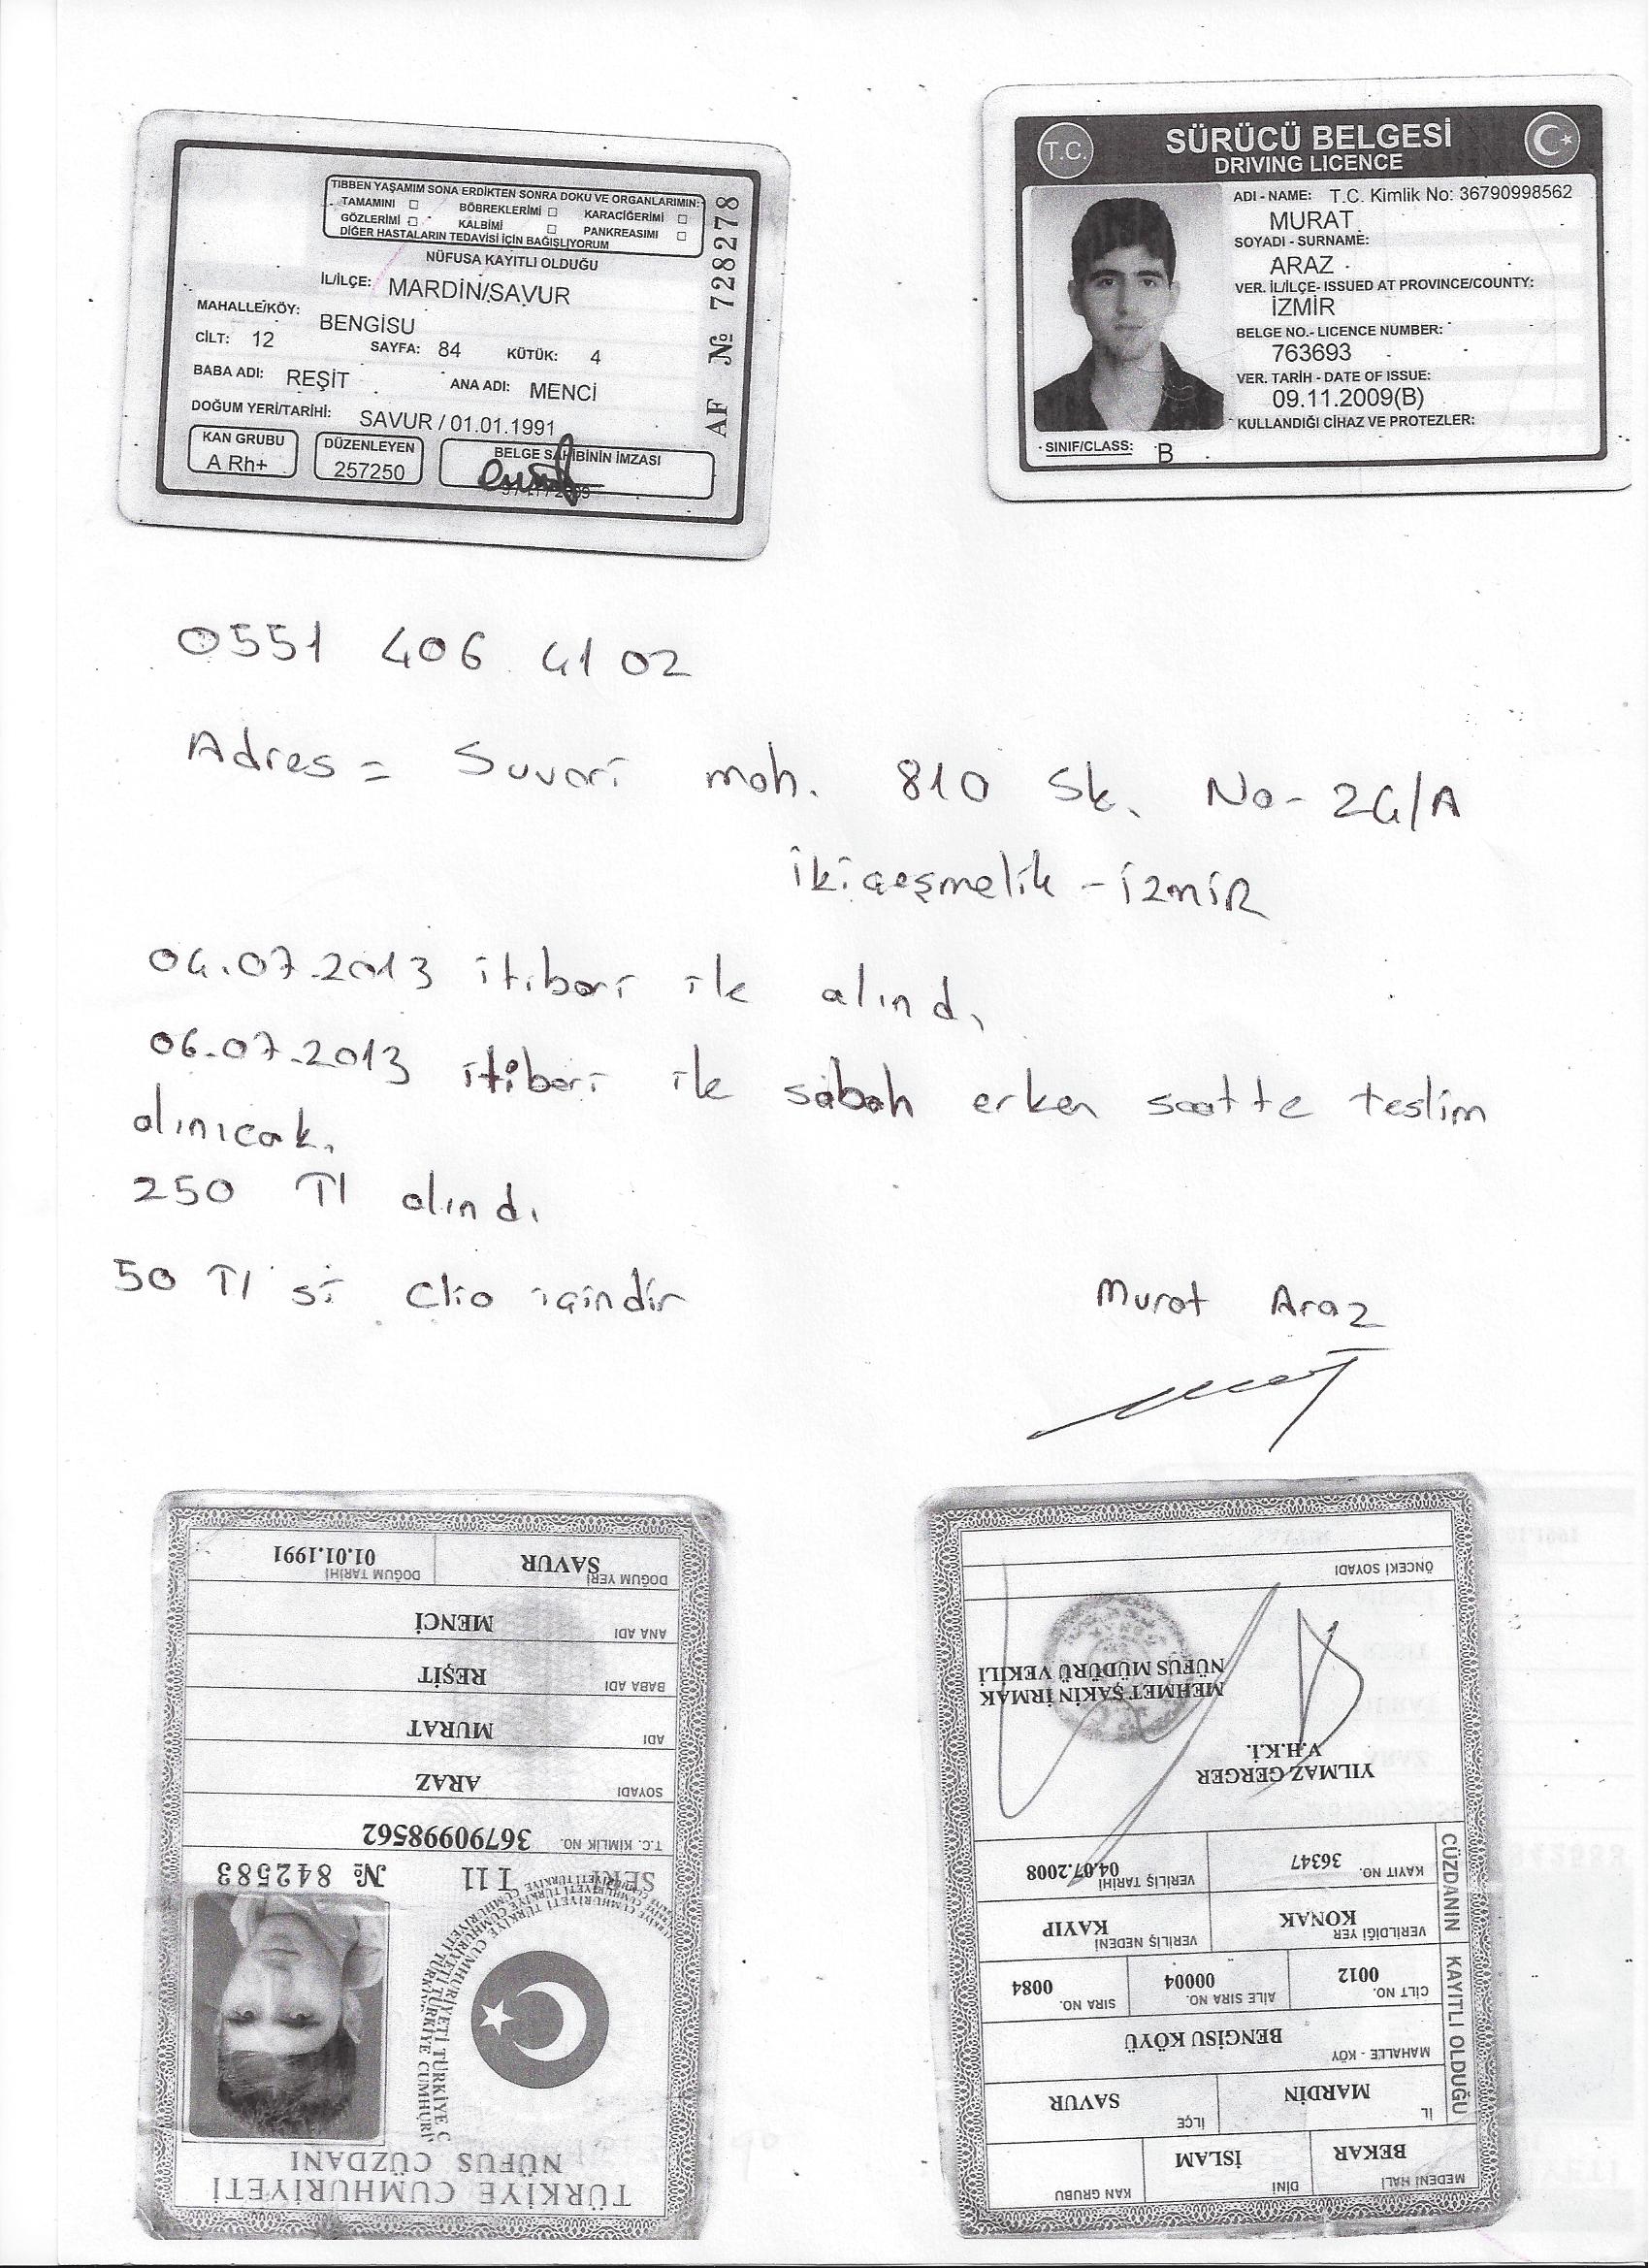 TIBBEN YAŞAMIM SONA ERDİKTEN SONRA DOKU VE ORGANLARIMIN:
TAMAMINI □ BÖBREKLERİMİ □ KARACİĞERİMİ □
GÖZLERİMİ □ KALBİMİ □ PANKREASIMI □
DİĞER HASTALARIN TEDAVİSİ İÇİN BAĞIŞLIYORUM
NÜFUSA KAYITLI OLDUĞU
İL/İLÇE: MARDİN/SAVUR
MAHALLE/KÖY: BENGİSU
CİLT: 12 SAYFA: 84 KÜTÜK: 4
BABA ADI: REŞİT ANA ADI: MENCİ
DOĞUM YERİ/TARİHİ: SAVUR / 01.01.1991
KAN GRUBU DÜZENLEYEN BELGE SAHİBİNİN İMZASI
A Rh+ 257250
AF № 728278
T.C. SÜRÜCÜ BELGESİ
DRIVING LICENCE
ADI - NAME: T.C. Kimlik No: 36790998562
MURAT
SOYADI - SURNAME:
ARAZ
VER. İL/İLÇE- ISSUED AT PROVINCE/COUNTY:
İZMİR
BELGE NO.- LICENCE NUMBER:
763693
VER. TARİH - DATE OF ISSUE:
09.11.2009(B)
KULLANDIĞI CİHAZ VE PROTEZLER:
SINIF/CLASS: B
0551 406 41 02
Adres = Suvari mah. 810 Sk. No - 24/A
ikiçeşmelik - İZMİR
04.07.2013 itibari ile alındı
06.07.2013 itibari ile sabah erken saatte teslim
alınıcak.
250 Tl alındı
50 Tl si Clio içindir
Murat Araz
TÜRKİYE CUMHURİYETİ
NÜFUS CÜZDANI
SERİ T11 № 842583
T.C. KİMLİK NO. 36790998562
SOYADI ARAZ
ADI MURAT
BABA ADI REŞİT
ANA ADI MENCİ
DOĞUM YERİ SAVUR DOĞUM TARİHİ 01.01.1991
MEDENİ HALİ BEKAR DİNİ İSLAM KAN GRUBU
KAYITLI OLDUĞU
İL MARDİN İLÇE SAVUR
MAHALLE - KÖY BENGİSU KÖYÜ
CİLT NO. 0012 AİLE SIRA NO. 00004 SIRA NO. 0084
CÜZDANIN
VERİLDİĞİ YER KONAK VERİLİŞ NEDENİ KAYIP
KAYIT NO. 36347 VERİLİŞ TARİHİ 04.07.2008
YILMAZ GERGER
V.H.K.İ.
MEHMET ŞAKİN IRMAK
NÜFUS MÜDÜRÜ VEKİLİ
ÖNCEKİ SOYADI